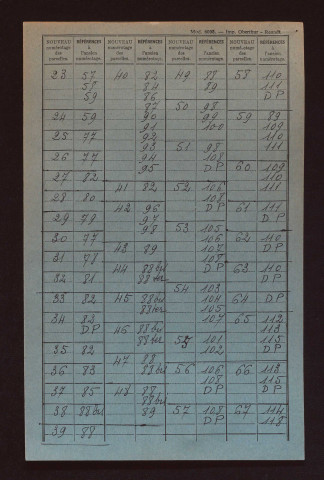 NOUVEAU numérotage des parcelles. RÉFÉRENCES à l'ancien numérotage. NOUVEAU numérotage des parcelles. RÉFÉRENCES à l'ancien numérotage. NOUVEAU numérotage des parcelles. RÉFÉRENCES à l'ancien numérotage. NOUVEAU numérotage des parcelles. RÉFÉRENCES à l'ancien numérotage.
23 57 40 82 49 88 58 110
58 84 89 111
59 86 DP
87 50 98
24 59 90 99 59 89
91 100 109
25 77 92 110
93 51 98 111
26 77 94 108
95 DP 60 109
27 82 110
41 82 52 106 111
28 80 108
42 96 DP 61 111
29 79 97 DP
98 53 105
30 77 106 62 110
43 89 107 DP
31 78 108
44 88 bis DP 63 110
32 81 88 ter DP
54 103
33 82 45 88 bis 104 64 DP
88 ter 105
34 82 107 65 112
DP 46 88 bis 113
88 ter 55 101 115
35 82 102 DP
47 88
36 83 88 bis 56 106 66 113
108 115
37 85 48 88 DP DP
88 bis
38 88 bis 89 57 108 67 114
DP 115
39 88